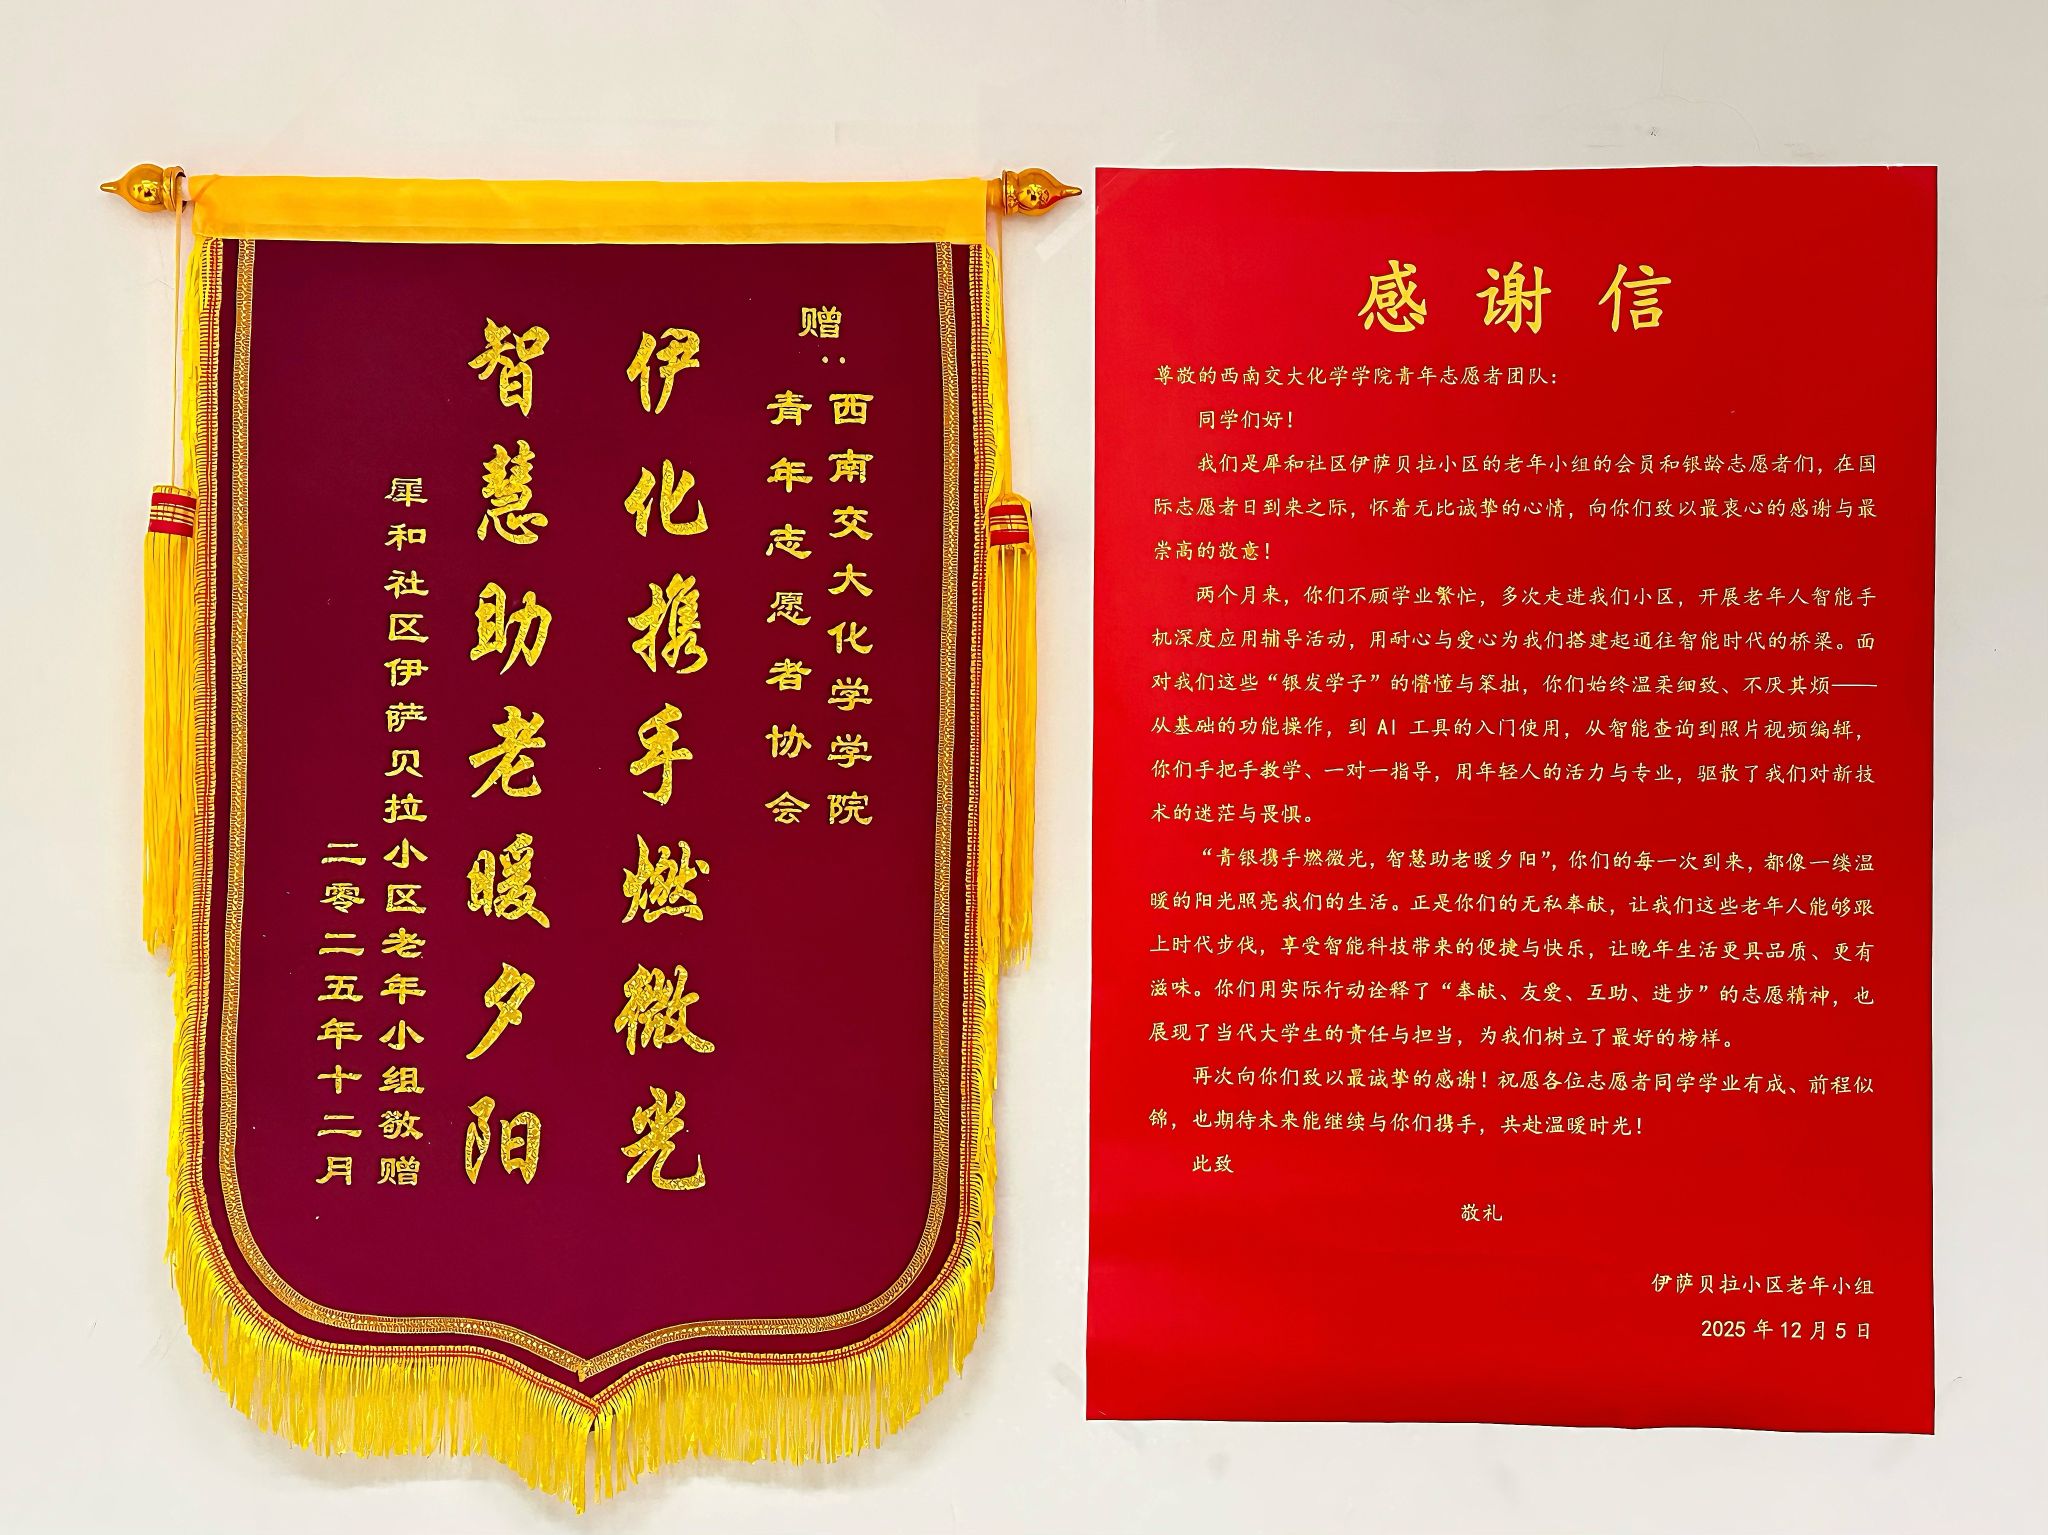 赠：
西南交大化学学院
青年志愿者协会
伊化携手燃微光
智慧助老暖夕阳
犀和社区伊萨贝拉小区老年小组敬赠
二零二五年十二月
感谢信
尊敬的西南交大化学学院青年志愿者团队：
同学们好！
我们是犀和社区伊萨贝拉小区的老年小组的会员和银龄志愿者们，在国
际志愿者日到来之际，怀着无比诚挚的心情，向你们致以最衷心的感谢与最
崇高的敬意！
两个月来，你们不顾学业繁忙，多次走进我们小区，开展老年人智能手
机深度应用辅导活动，用耐心与爱心为我们搭建起通往智能时代的桥梁。面
对我们这些“银发学子”的懵懂与笨拙，你们始终温柔细致、不厌其烦——
从基础的功能操作，到 AI 工具的入门使用，从智能查询到照片视频编辑，
你们手把手教学、一对一指导，用年轻人的活力与专业，驱散了我们对新技
术的迷茫与畏惧。
“青银携手燃微光，智慧助老暖夕阳”，你们的每一次到来，都像一缕温
暖的阳光照亮我们的生活。正是你们的无私奉献，让我们这些老年人能够跟
上时代步伐，享受智能科技带来的便捷与快乐，让晚年生活更具品质、更有
滋味。你们用实际行动诠释了“奉献、友爱、互助、进步”的志愿精神，也
展现了当代大学生的责任与担当，为我们树立了最好的榜样。
再次向你们致以最诚挚的感谢！祝愿各位志愿者同学学业有成、前程似
锦，也期待未来能继续与你们携手，共赴温暖时光！
此致
敬礼
伊萨贝拉小区老年小组
2025 年 12 月 5 日